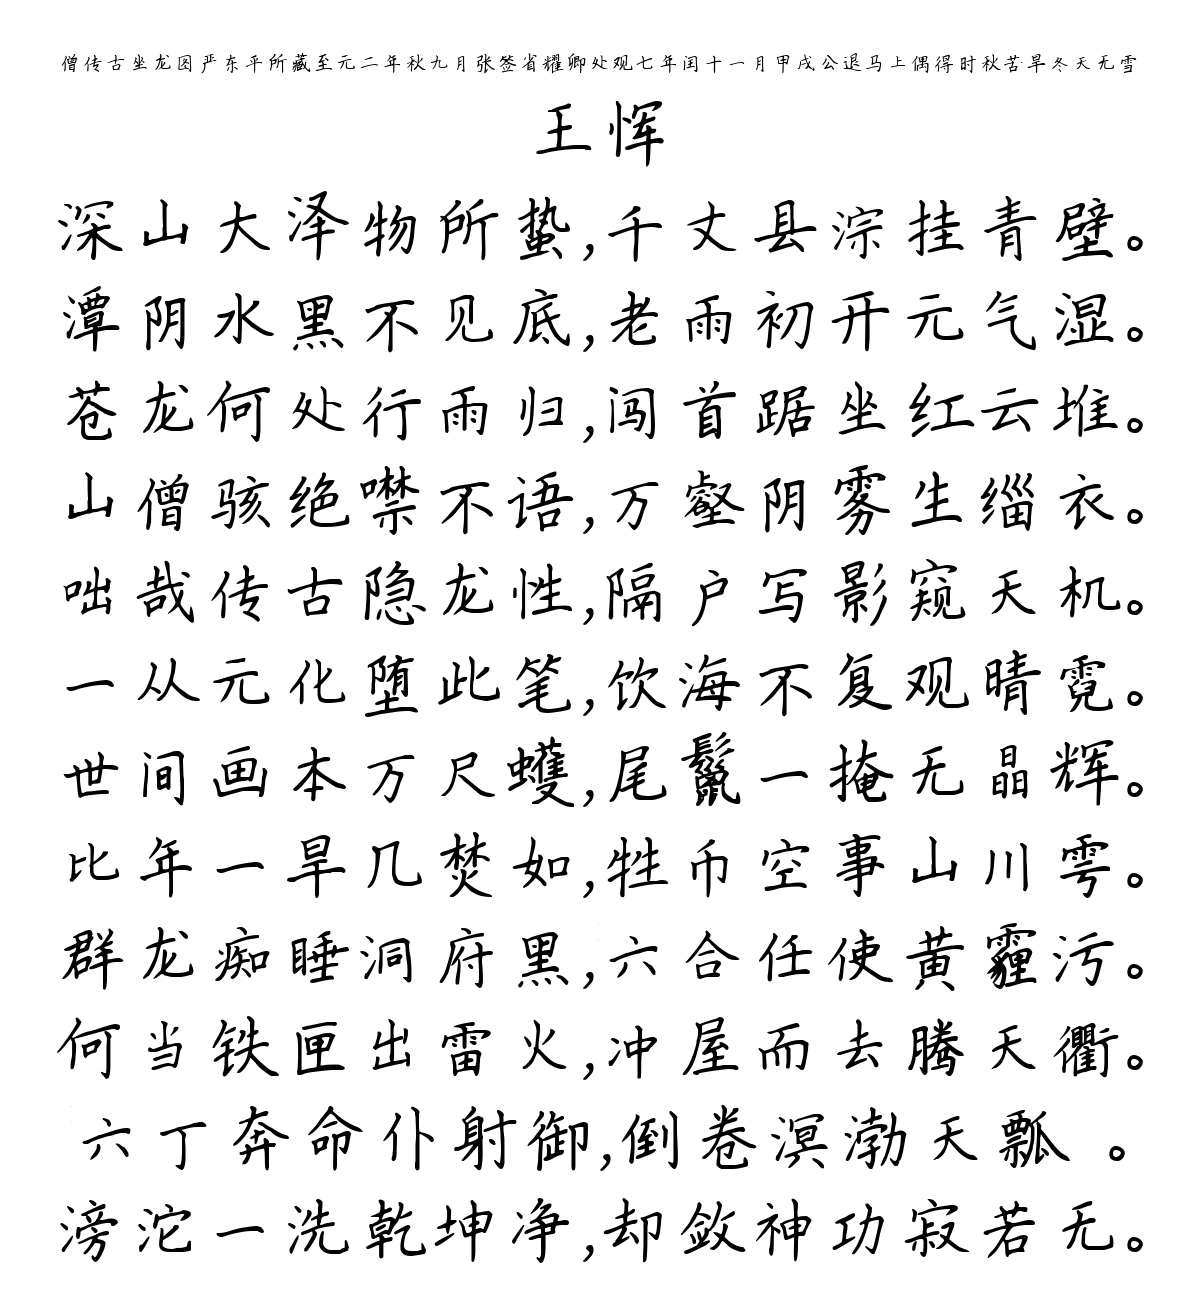 僧传古坐龙图严东平所藏至元二年秋九月张签省耀卿处观七年闰十一月甲戌公退马上偶得时秋苦旱冬天无雪
王恽
深山大泽物所蛰,千丈县淙挂青壁。
潭阴水黑不见底,老雨初开元气湿。
苍龙何处行雨归,闯首踞坐红云堆。
山僧骇绝噤不语,万壑阴雾生缁衣。
咄哉传古隐龙性,隔户写影窥天机。
一从元化堕此笔,饮海不复观晴霓。
世间画本万尺蠖,尾鬣一掩无晶辉。
比年一旱几焚如,牲币空事山川雩。
群龙痴睡洞府黑,六合任使黄霾污。
何当铁匣出雷火,冲屋而去腾天衢。
六丁奔命仆射御,倒卷溟渤天瓢。
滂沱一洗乾坤净,却敛神功寂若无。